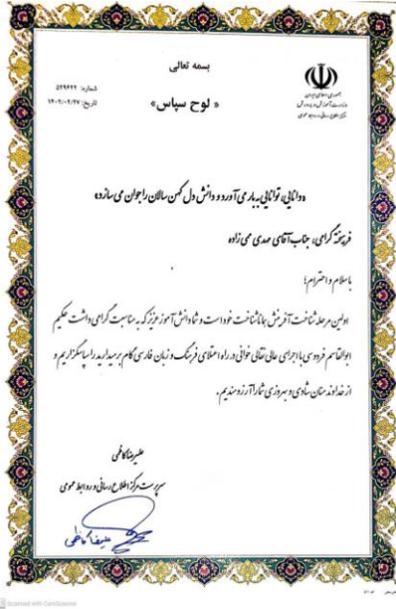 بسمه تعالی
جمهوری اسلامی ایران
وزارت آموزش و پرورش
مرکز اطلاع رسانی و روابط عمومی
شماره: ۵۲۹۴۲۲
تاریخ: ۱۴۰۲/۰۲/۲۷
« لوح سپاس»
«دانایی، توانایی به بار می‌آورد و دانش دل کهن سالان را جوان می‌سازد»
فرهیخته گرامی، جناب آقای مهدی ممی زاده
با سلام و احترام؛
اولین مرحله شناخت آفرینش همانا شناخت خود است و شما دانش آموز عزیز که به مناسبت گرامی داشت حکیم
ابوالقاسم فردوسی با اجرای عالی نقالی خوانی در راه اعتلای فرهنگ و زبان فارسی گام برمیدارید را سپاسگزاریم و
از خداوند منان شادی و بهروزی شما را آرزومندیم.
علیرضا کاظمی
سرپرست مرکز اطلاع رسانی و روابط عمومی
علیرضا کاظمی
Scanned with CamScanner